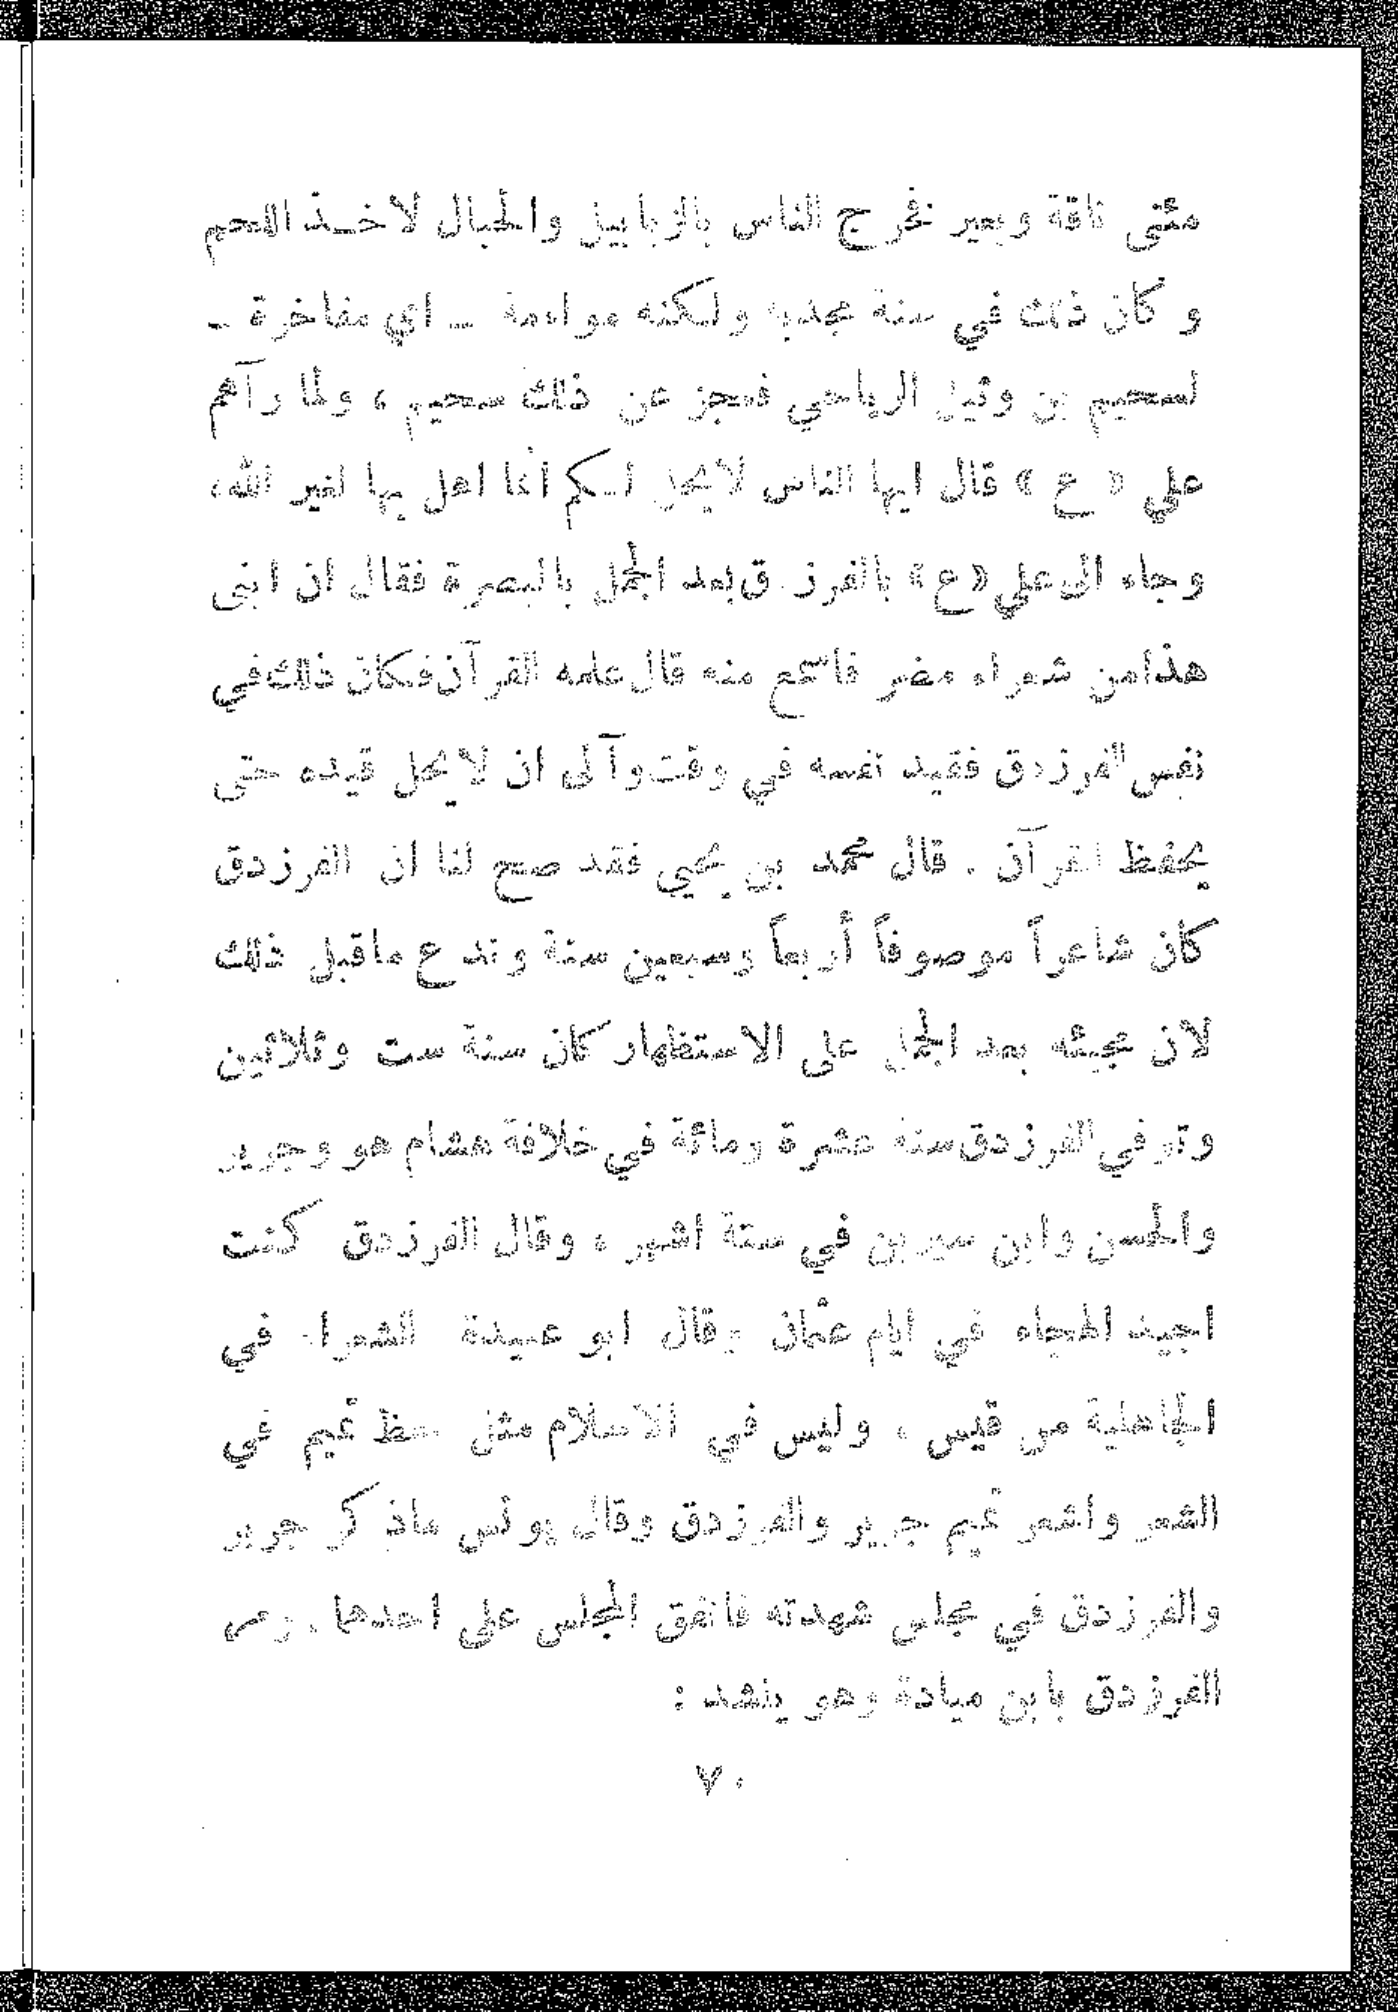 مئتي ناقة وبعير فخرج الناس بالزبابيل والحبال لاخـذ اللحم
وكان ذلك في سنة مجدبة ولكنه مواءمة ـ اي مفاخرة ـ
لسحيم بن وثيل الرياحي فعجز عن ذلك سحيم ، ولما رآهم
علي « ع » قال ايها الناس لايحل لـكم انما اهل بها لغير الله،
وجاء الى علي «ع» بالفرزدق بعد الجمل بالبصرة فقال ان ابني
هذا من شعراء مضر فاسمع منه قال علمه القرآن فكان ذلك في
نفس الفرزدق فقيد نفسه في وقت وآلى ان لايحل قيده حتى
يحفظ القرآن . قال محمد بن يحيي فقد صح لنا ان الفرزدق
كان شاعراً موصوفاً أربعاً وسبعين سنة وندع ماقبل ذلك
لان مجيئه بعد الجمل على الاستظهار كان سنة ست وثلاثين
وتوفي الفرزدق سنة عشرة ومائة في خلافة هشام هو وجرير
والحسن وابن سيرين في ستة اشهر ، وقال الفرزدق كنت
اجيد الهجاء في ايام عثمان وقال ابو عبيدة الشعراء في
الجاهلية من قيس ، وليس في الاسلام مثل حظ تميم في
الشعر واشعر تميم جرير والفرزدق وقال يونس ماذكر جرير
والفرزدق في مجلس شهدته فاتفق المجلس على احدهما . ومر
الفرزدق بابن ميادة وهو ينشد :
٧٠